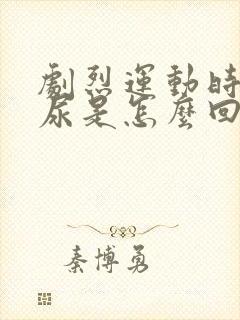 劇烈運動時
尿是怎麼回
秦博勇